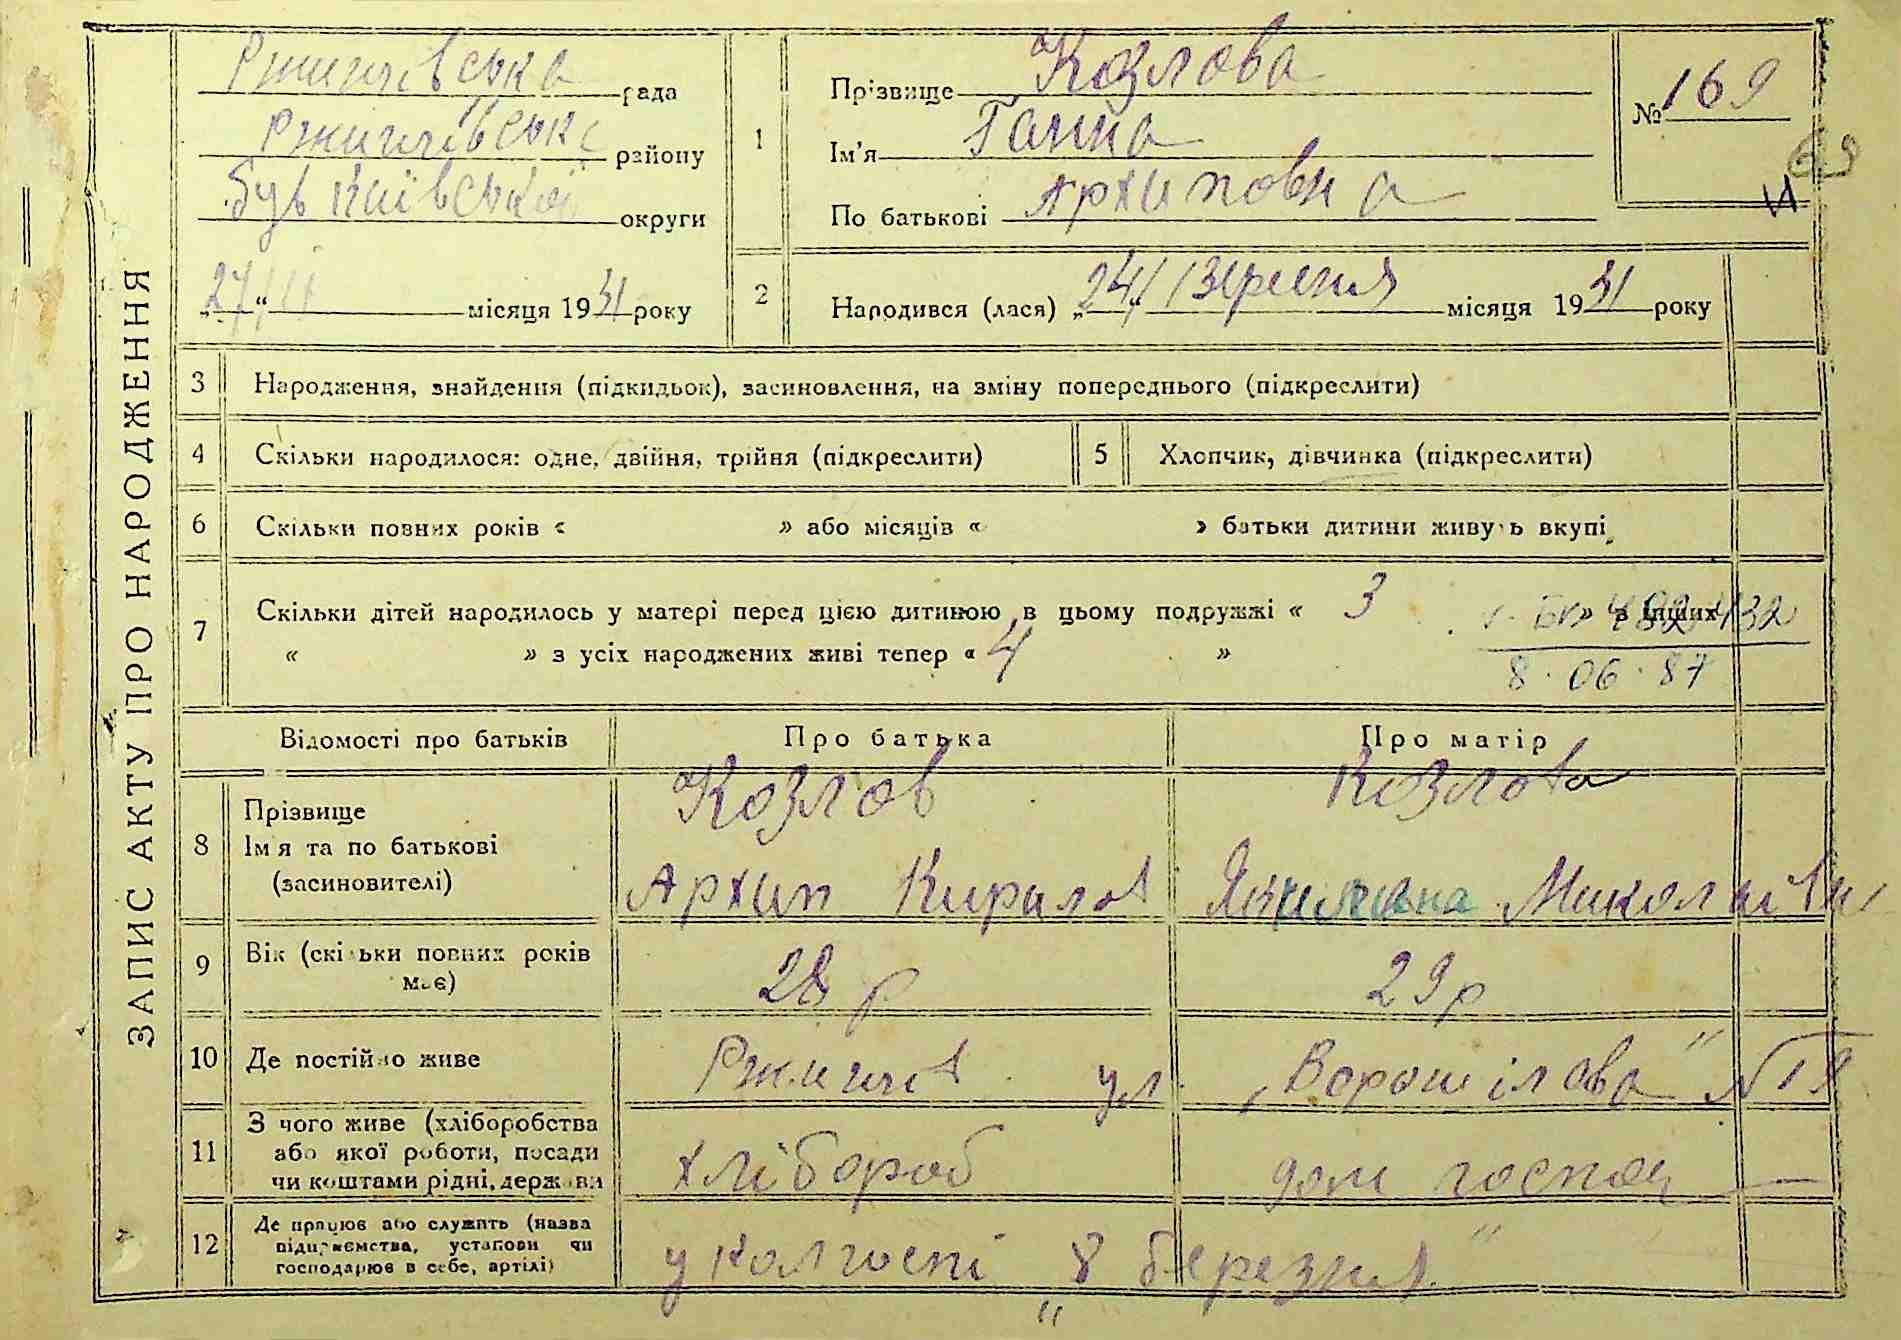 ЗАПИС АКТУ ПРО НАРОДЖЕННЯ
Ржищівська рада
Ржищівськ району
був Київської округи
„27“ місяця 1931 року
1
Прізвище Козлова
Ім'я Ганна
По батькові Архиповна
№ 169
69
2
Народився (лася) „24“ Вересня місяця 1931 року
3 Народження, знайдення (підкидьок), засиновлення, на зміну попереднього (підкреслити)
4 Скільки народилося: одне, двійня, трійня (підкреслити)
5 Хлопчик, дівчинка (підкреслити)
6 Скільки повних років « » або місяців « » батьки дитини живуть вкупі
7 Скільки дітей народилось у матері перед цією дитиною в цьому подружжі « 3 » в інших
« » з усіх народжених живі тепер « 4 »
432
8.06.87
Відомості про батьків Про батька Про матір
8 Прізвище Козлов Козлова
Ім'я та по батькові
(засиновителі) Архип Кирилов Миколаївн
9 Вік (скільки повних років
має) 28 р 29 р
10 Де постійно живе Ржищів ул. „Ворошілова" №19
11 З чого живе (хліборобства
або якої роботи, посади
чи коштами рідні, держави хлібороб дом господ
12 Де працює або служить (назва
підприємства, установи чи
господарює в себе, артілі) у колгоспі „8 березня"